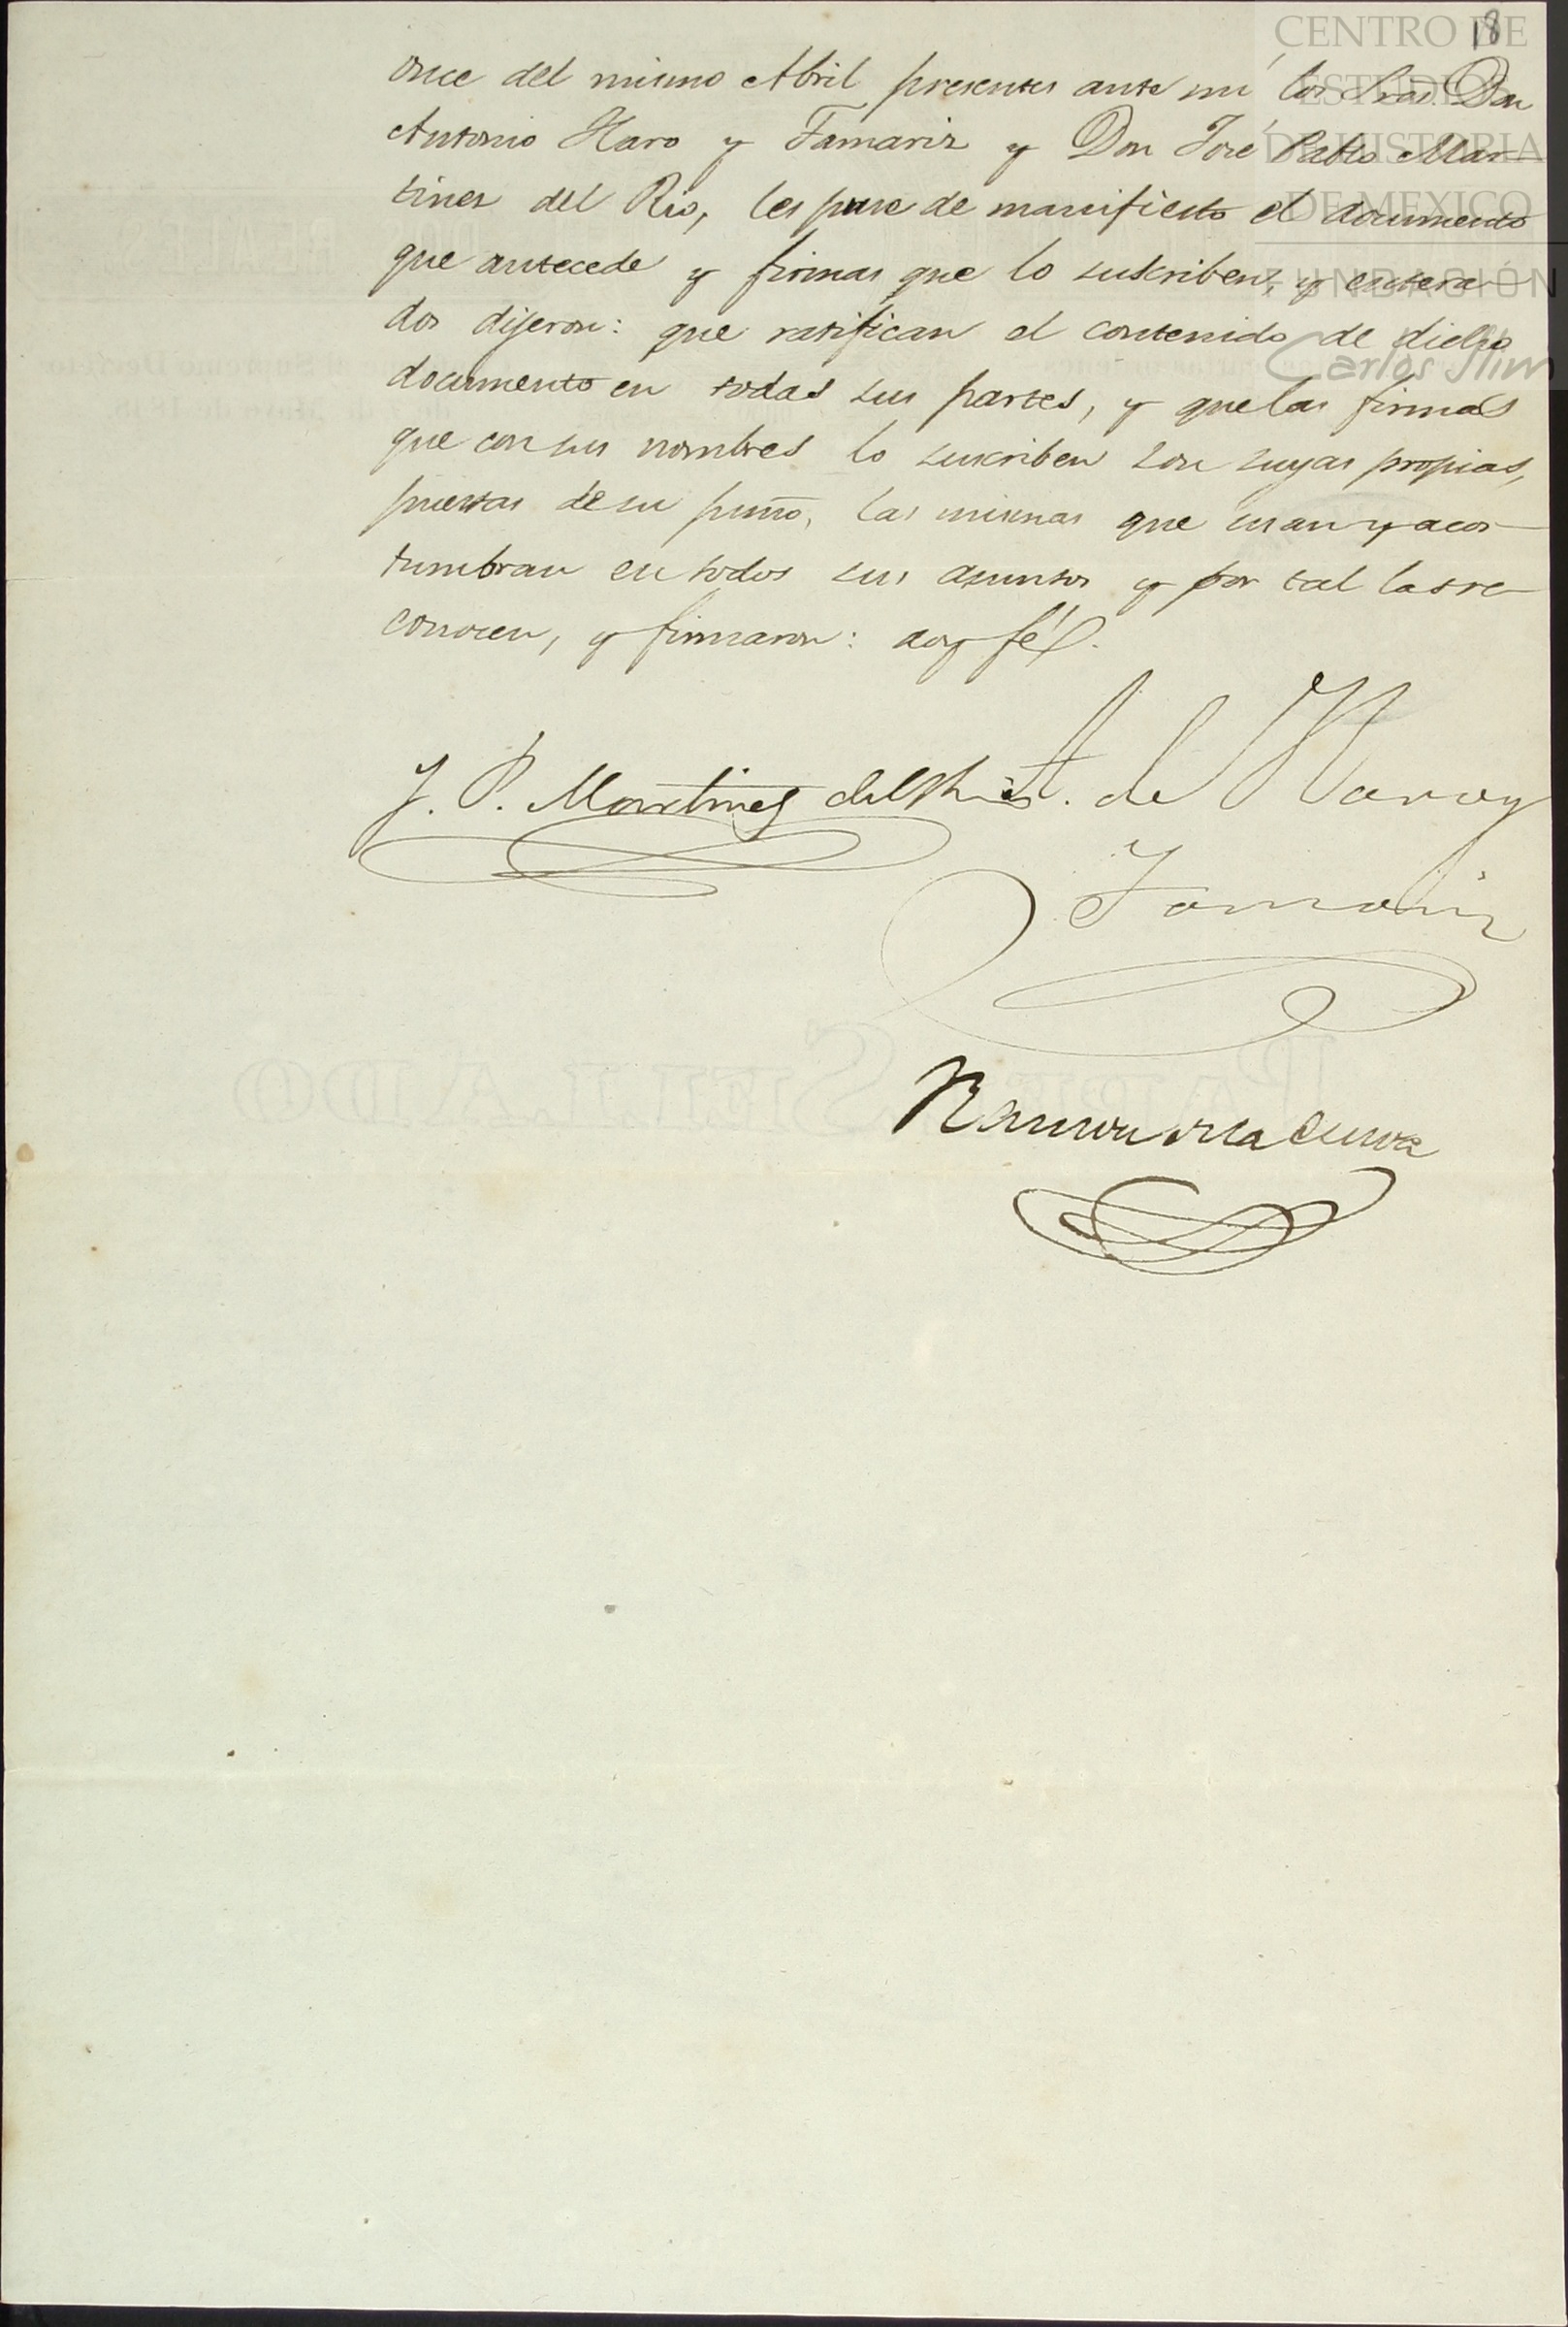 18
CENTRO DE
ESTUDIOS
DE HISTORIA
DE MEXICO
FUNDACIÓN
Carlos Slim
once del mismo Abril presentes ante mí los Sres. Don
Antonio Haro y Tamariz y Don José Pablo Mar-
tinez del Rio, les puse de manifiesto el documento
que antecede y firmas que lo suscriben, y entera-
dos dijeron: que ratifican el contenido de dicho
documento en todas sus partes, y que las firmas
que con sus nombres lo suscriben son suyas propias,
puestas de su puño, las mismas que usan y acos-
tumbran en todos sus asuntos y por tal las re-
conocen, y firmaron: doy fé.
J. P. Martinez del Rio
A. de Haro y
Tamariz
Ramon de la Cueva
PAPEL SELLADO
Supremo Decreto